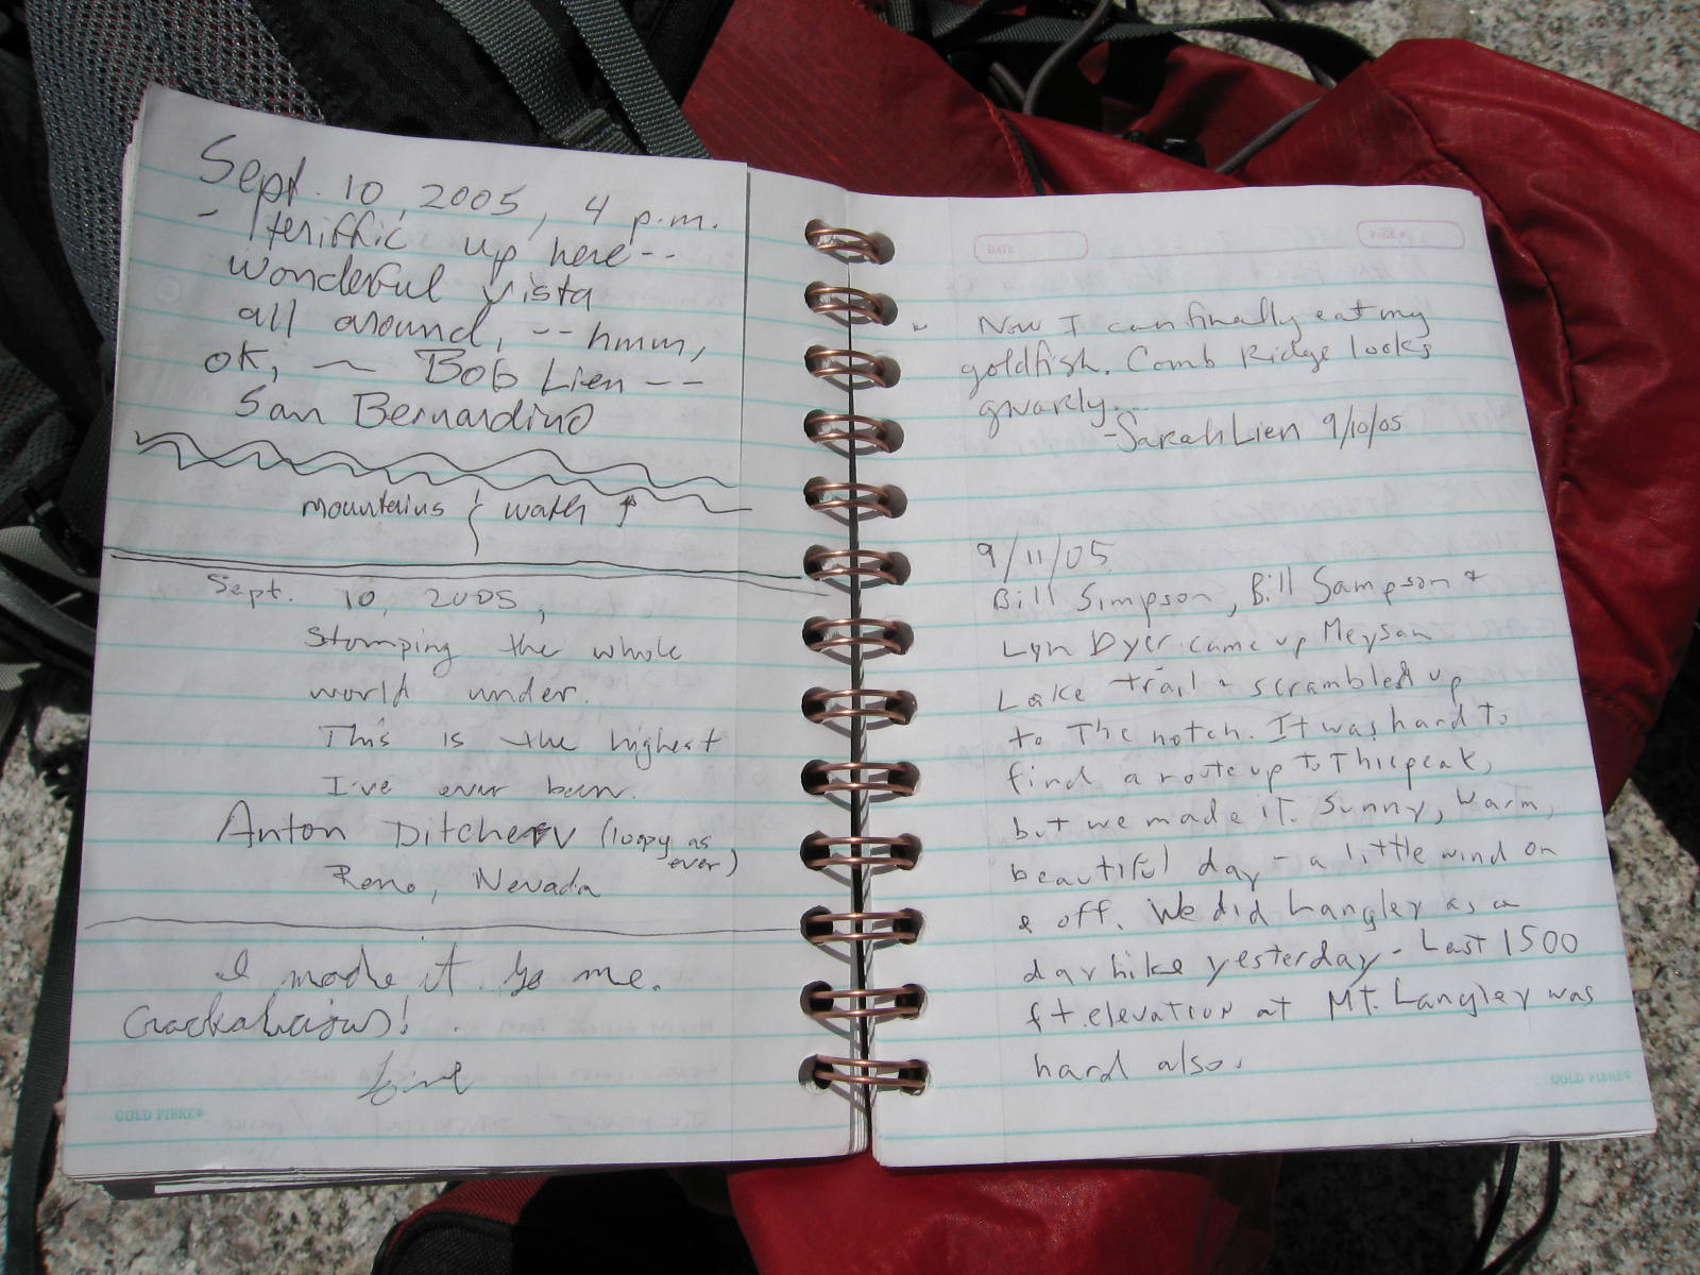 Sept. 10, 2005, 4 p.m.
- teriffic up here--
wonderful vista
all around, -- hmm,
ok, — Bob Lien --
San Bernardino
mountains
Sept. 10, 2005,
Stomping the whole
world under.
This is the highest
I've ever been.
Anton Ditcherv (loopy as
ever)
Reno, Nevada
I made it to me.
Crackalicious!
DATE
PAGE #
Now I can finally eat my
goldfish. Comb Ridge looks
gnarly...
-Sarah Lien 9/10/05
9/11/05
Bill Simpson, Bill Sampson &
Lyn Dyer came up Meysan
Lake trail & scrambled up
to The notch. It was hard to
find a route up to This peak,
but we made it. Sunny, warm,
beautiful day - a little wind on
& off. We did Langley as a
day hike yesterday - Last 1500
ft. elevation at Mt. Langley was
hard also.
GOLD FIBRE®
GOLD FIBRE®